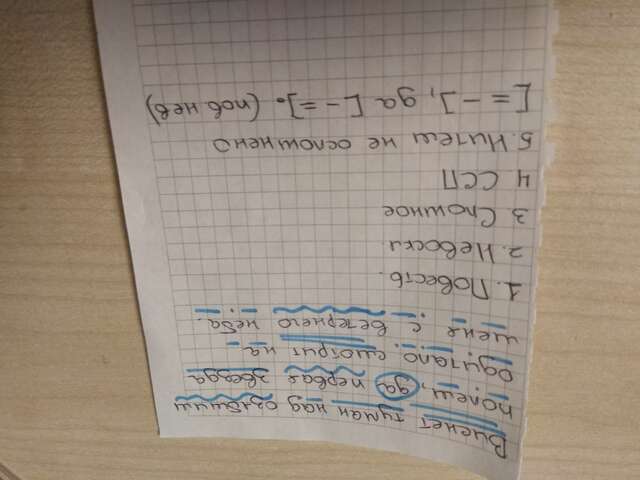 Виснет туман над озябшим
полем, да первая звезда
одиноко смотрит на
меня с вечернего неба.
1. Повеств.
2. Невоскл.
3. Сложное
4 ССП
5. Ничем не осложнено
[= –], да [– =]. (пов нев)